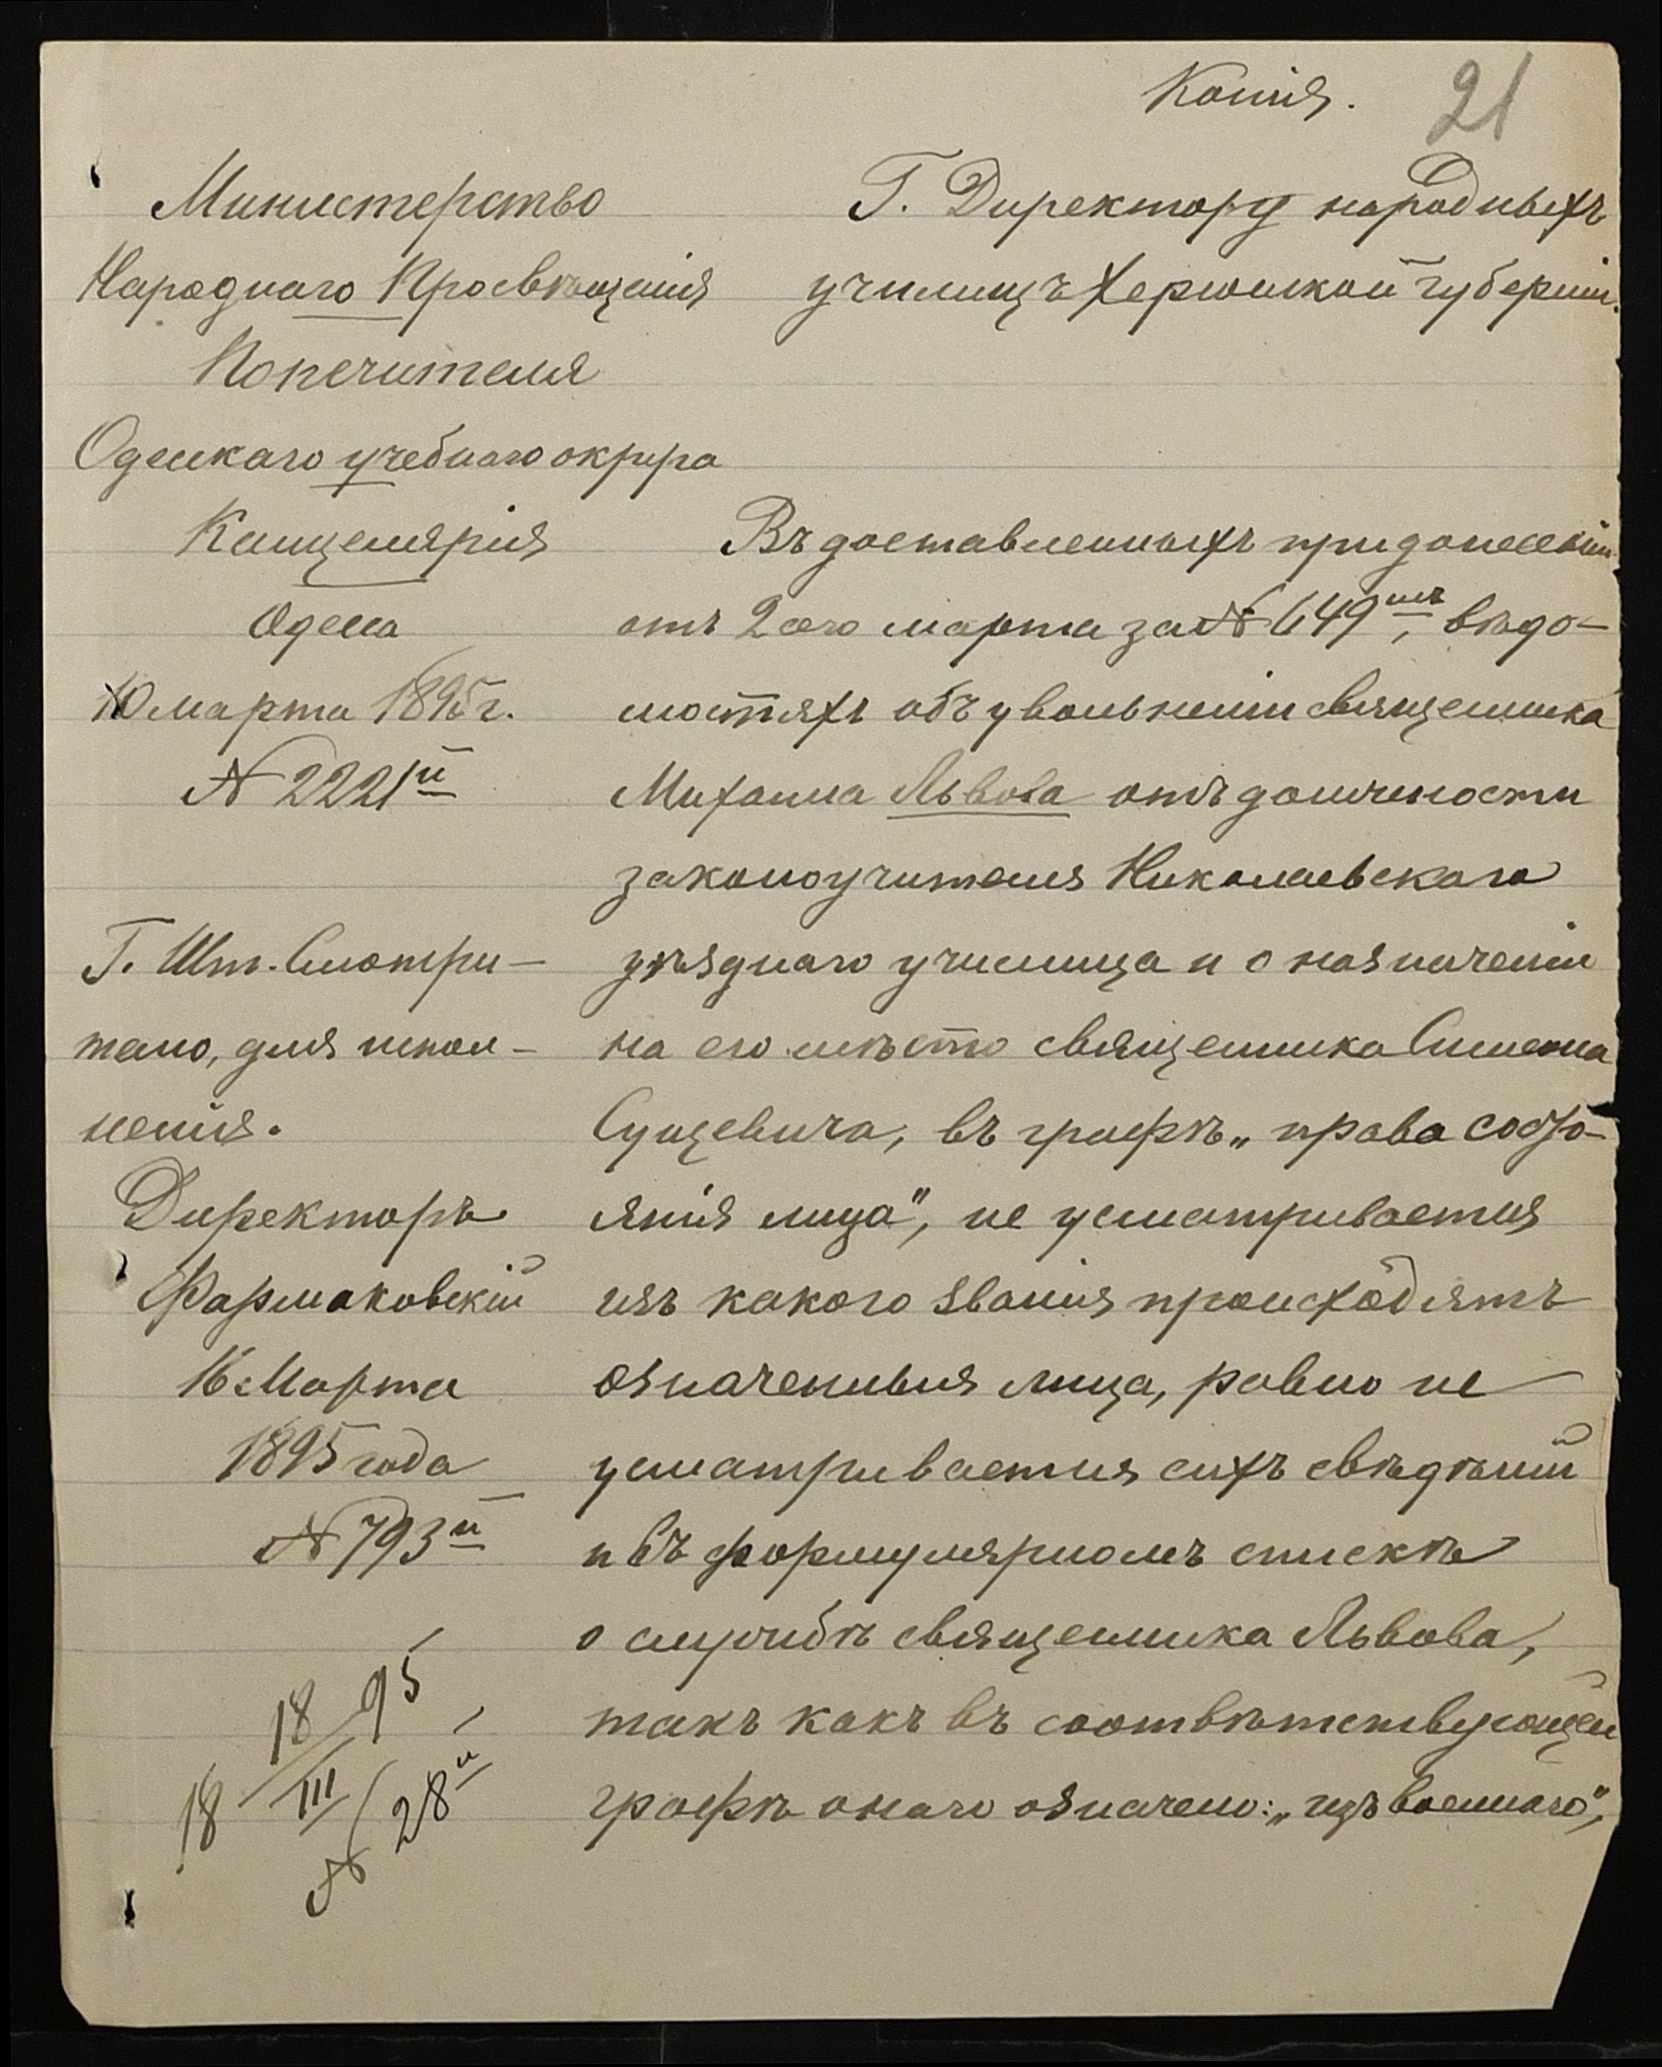 Копія.
21
Министерство
Народнаго Просвѣщенія
Попечителя
Одесскаго учебнаго округа
Канцелярія
Одесса
10 марта 1895 г.
№ 2221й
Г. Шт. Смотри-
телю, для испол-
ненія.
Директоръ
Фармаковскій
16 Марта
1895 года
№ 793й
18 18/III 95
№ 28й
Г. Директору народныхъ
училищъ Херсонской губерніи.
Въ доставленныхъ при донесеніи
отъ 2ого марта за № 649мъ, вѣдо-
мостяхъ объ увольненіи священника
Михаила Львова отъ должности
законоучителя Николаевскаго
уѣзднаго училища и о назначеніи
на его мѣсто священника Симеона
Сущевича, въ графѣ „права состо-
янія лица", не усматривается
изъ какого званія происходятъ
означенныя лица, равно не
усматривается сихъ свѣдѣній
и въ формулярномъ спискѣ
о службѣ священника Львова,
такъ какъ въ соотвѣтствующей
графѣ онаго означено: „изъ военнаго",